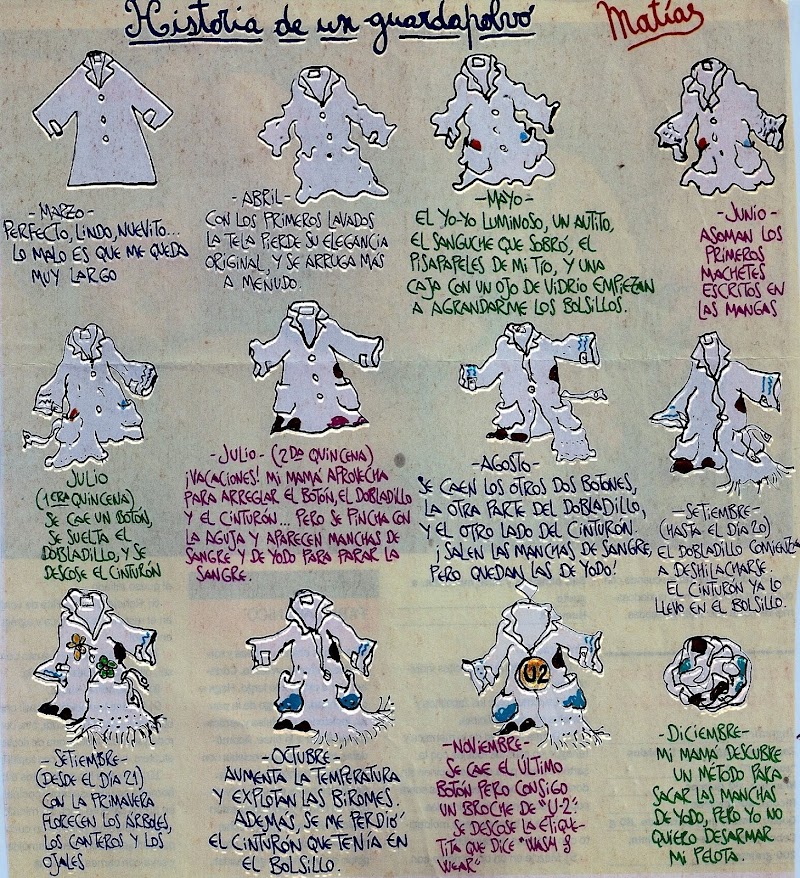 Historia de un guardapolvo
Matías
-MARZO-
PERFECTO, LINDO, NUEVITO...
LO MALO ES QUE ME QUEDA
MUY LARGO
-ABRIL-
CON LOS PRIMEROS LAVADOS
LA TELA PIERDE SU ELEGANCIA
ORIGINAL, Y SE ARRUGA MÁS
A MENUDO.
-MAYO-
EL YO-YO LUMINOSO, UN AUTITO,
EL SANGUCHE QUE SOBRÓ, EL
PISAPAPELES DE MI TÍO, Y UNA
CAJA CON UN OJO DE VIDRIO EMPIEZAN
A AGRANDARME LOS BOLSILLOS.
-JUNIO-
ASOMAN LOS
PRIMEROS
MACHETES
ESCRITOS EN
LAS MANGAS
JULIO
(1ERA QUINCENA)
SE CAE UN BOTÓN,
SE SUELTA EL
DOBLADILLO, Y SE
DESCOSE EL CINTURÓN
-JULIO- (2DA QUINCENA)
¡VACACIONES! MI MAMÁ APROVECHA
PARA ARREGLAR EL BOTÓN, EL DOBLADILLO
Y EL CINTURÓN... PERO SE PINCHA CON
LA AGUJA Y APARECEN MANCHAS DE
SANGRE Y DE YODO PARA PARAR LA
SANGRE.
-AGOSTO-
SE CAEN LOS OTROS DOS BOTONES,
LA OTRA PARTE DEL DOBLADILLO,
Y EL OTRO LADO DEL CINTURÓN.
¡SALEN LAS MANCHAS DE SANGRE,
PERO QUEDAN LAS DE YODO!
-SETIEMBRE-
(HASTA EL DÍA 20)
EL DOBLADILLO COMIENZA
A DESHILACHARSE.
EL CINTURÓN YA LO
LLEVO EN EL BOLSILLO.
-SETIEMBRE-
(DESDE EL DÍA 21)
CON LA PRIMAVERA
FLORECEN LOS ÁRBOLES,
LOS CANTEROS Y LOS
OJALES
-OCTUBRE-
AUMENTA LA TEMPERATURA
Y EXPLOTAN LAS BIROMES.
ADEMÁS, SE ME PERDIÓ
EL CINTURÓN QUE TENÍA EN
EL BOLSILLO.
U2
-NOVIEMBRE-
SE CAE EL ÚLTIMO
BOTÓN PERO CONSIGO
UN BROCHE DE "U-2".
SE DESCOSE LA ETIQUE-
TITA QUE DICE "WASH &
WEAR"
-DICIEMBRE-
MI MAMÁ DESCUBRE
UN MÉTODO PARA
SACAR LAS MANCHAS
DE YODO, PERO YO NO
QUIERO DESARMAR
MI PELOTA.